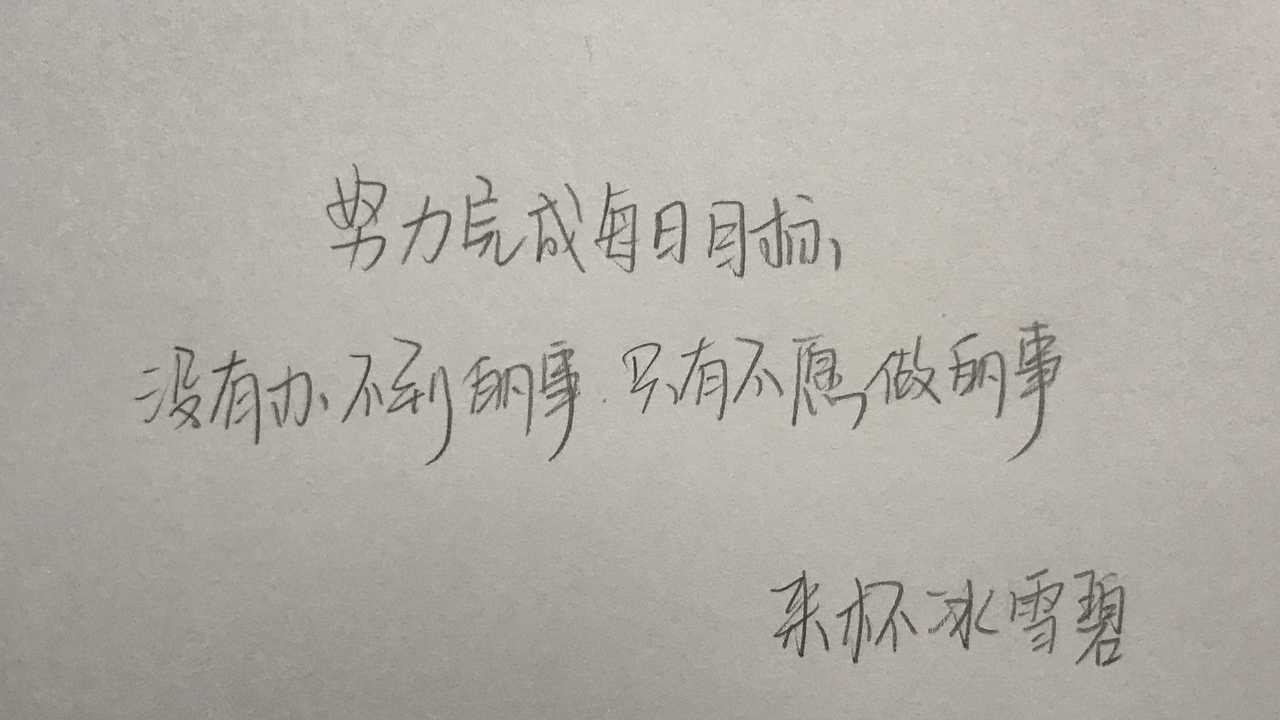 努力完成每日目标，
没有办不到的事.只有不愿做的事
来杯冰雪碧